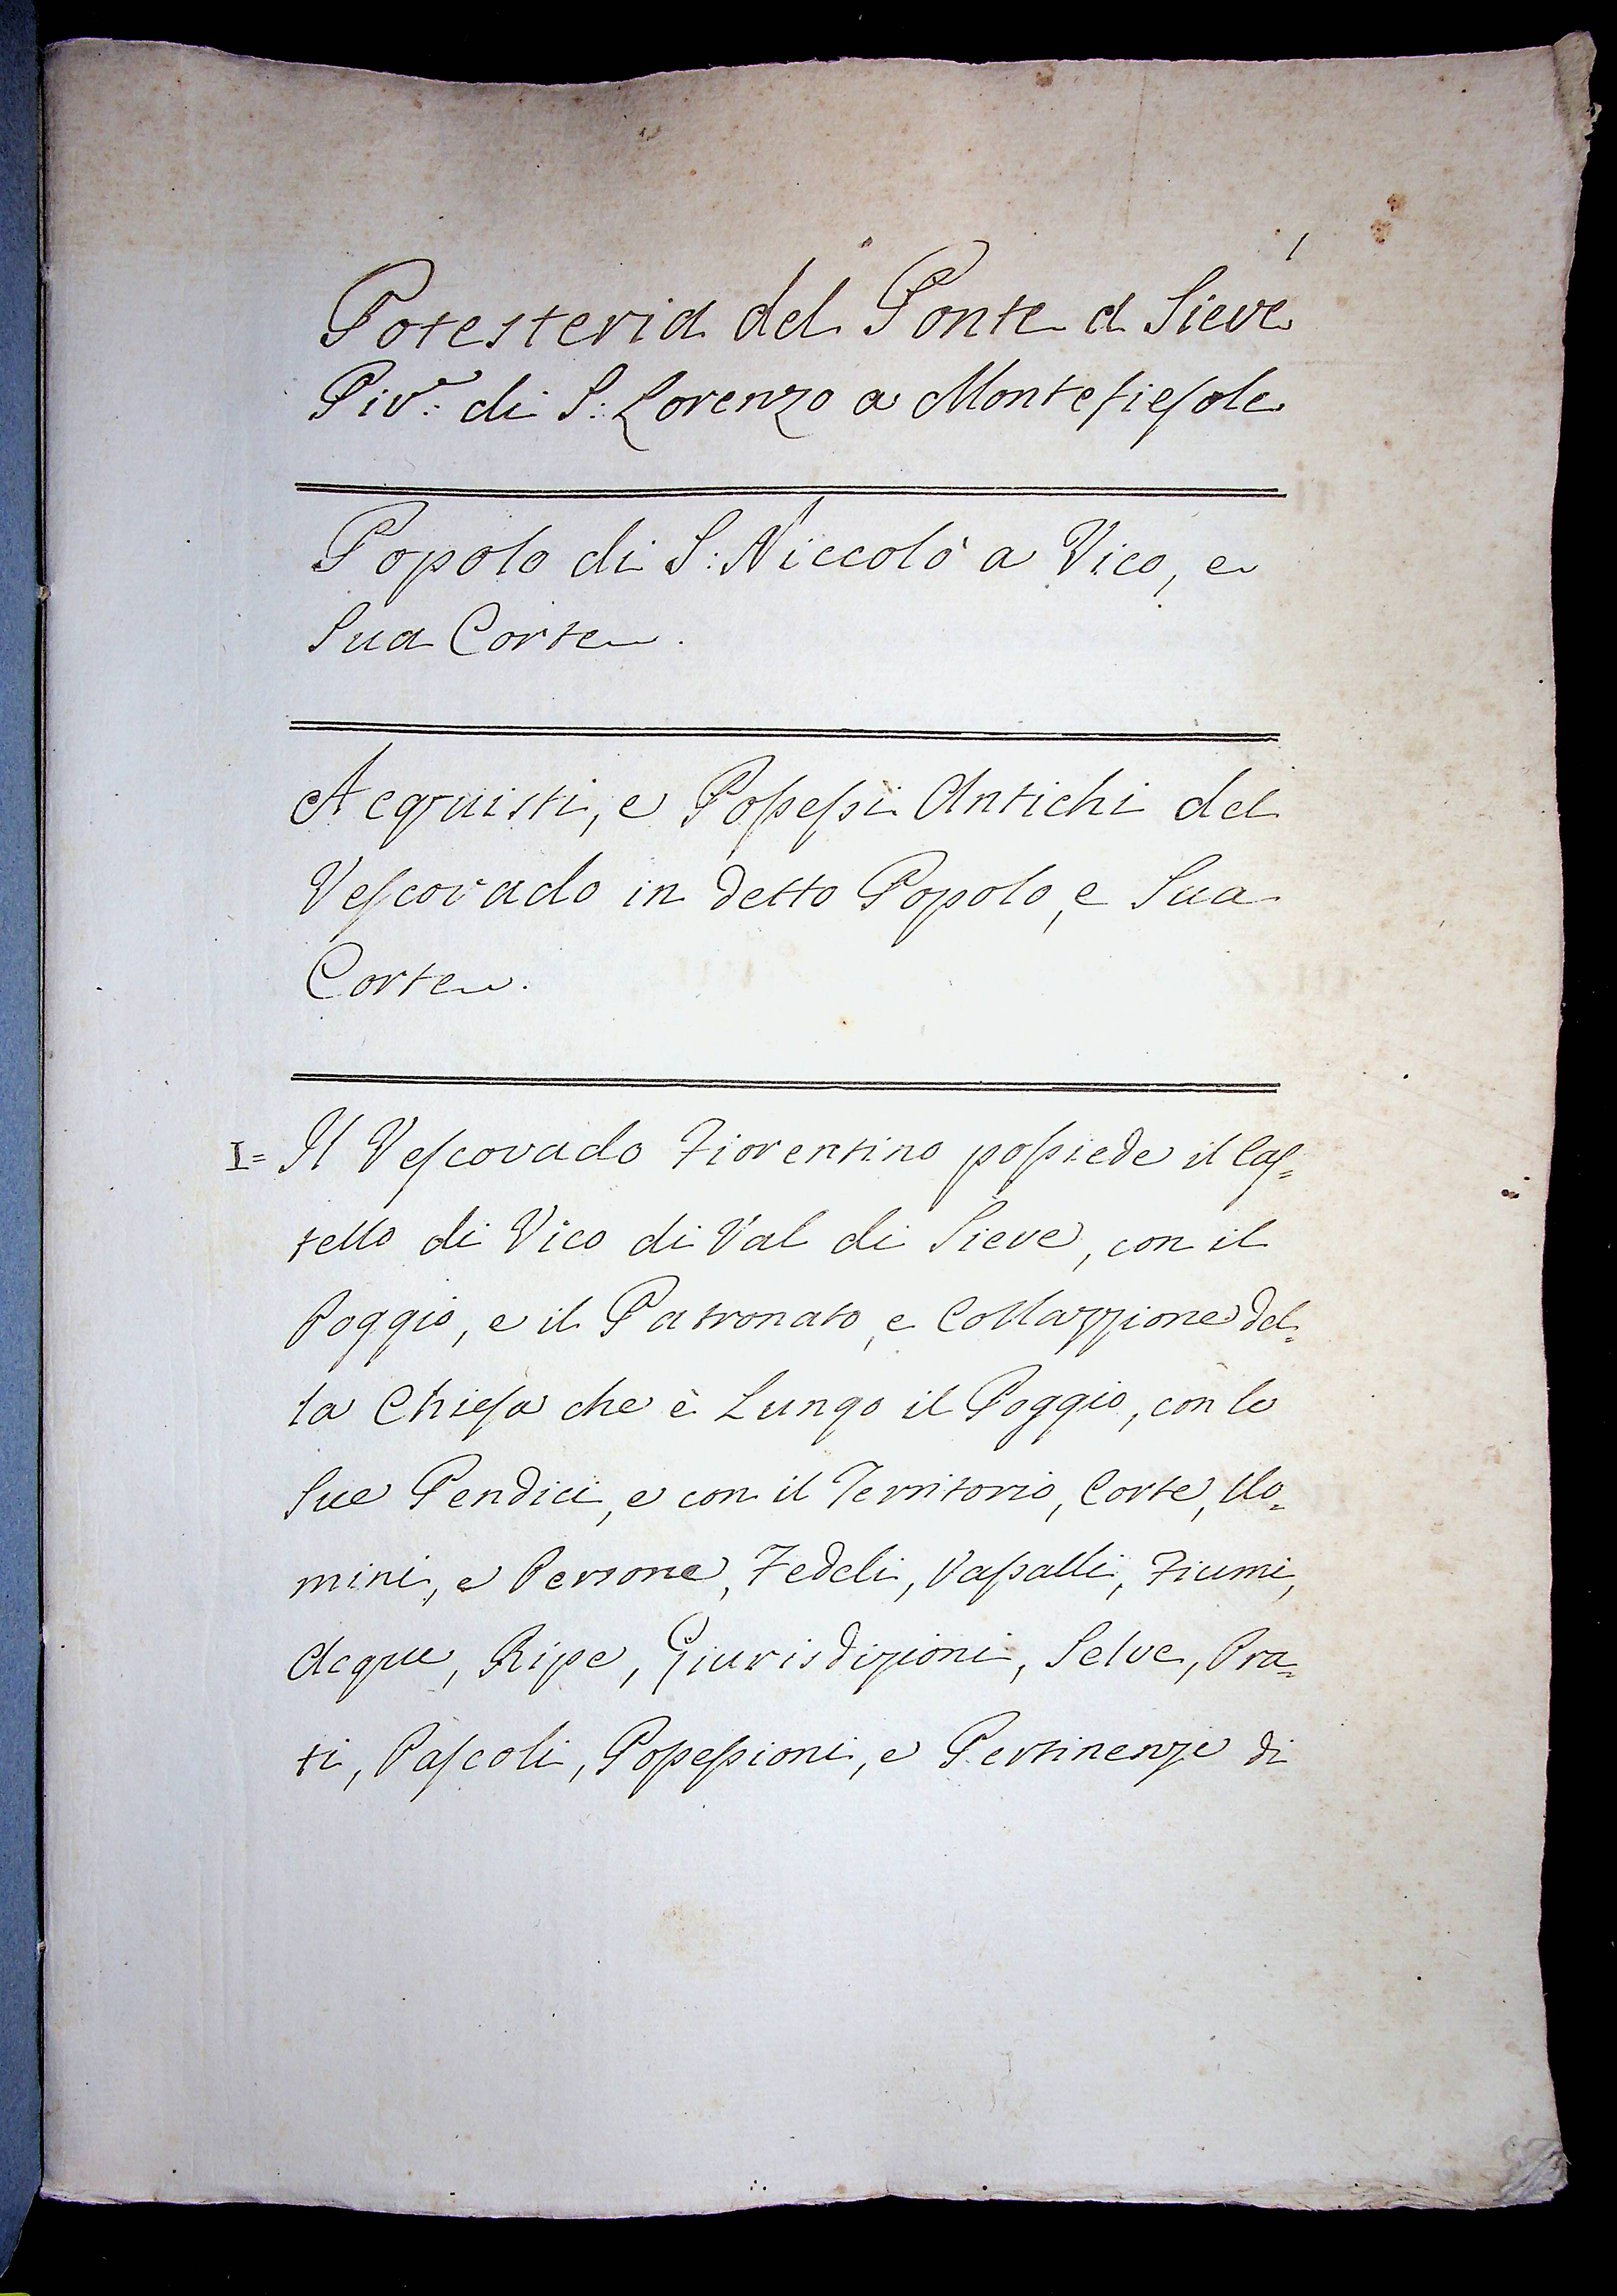 1
Potesteria del Ponte a Sieve
Piv.e di S: Lorenzo a Montefiesole
Popolo di S: Niccolò a Vico, e
Sua Corte.
Acquisti, e Possessi Antichi del
Vescovado in detto Popolo, e Sua
Corte.
I= Il Vescovado Fiorentino possiede il Cas=
tello di Vico di Val di Sieve, con il
Poggio, e il Patronato, e Collazzione del=
la Chiesa che è Lungo il Poggio, con le
Sue Pendici, e con il Territorio, Corte, Uo=
mini, e Persone, Fedeli, Vassalli, Fiumi,
Acque, Ripe, Giurisdizioni, Selve, Pra=
ti, Pascoli, Possessioni, e Pertinenze di